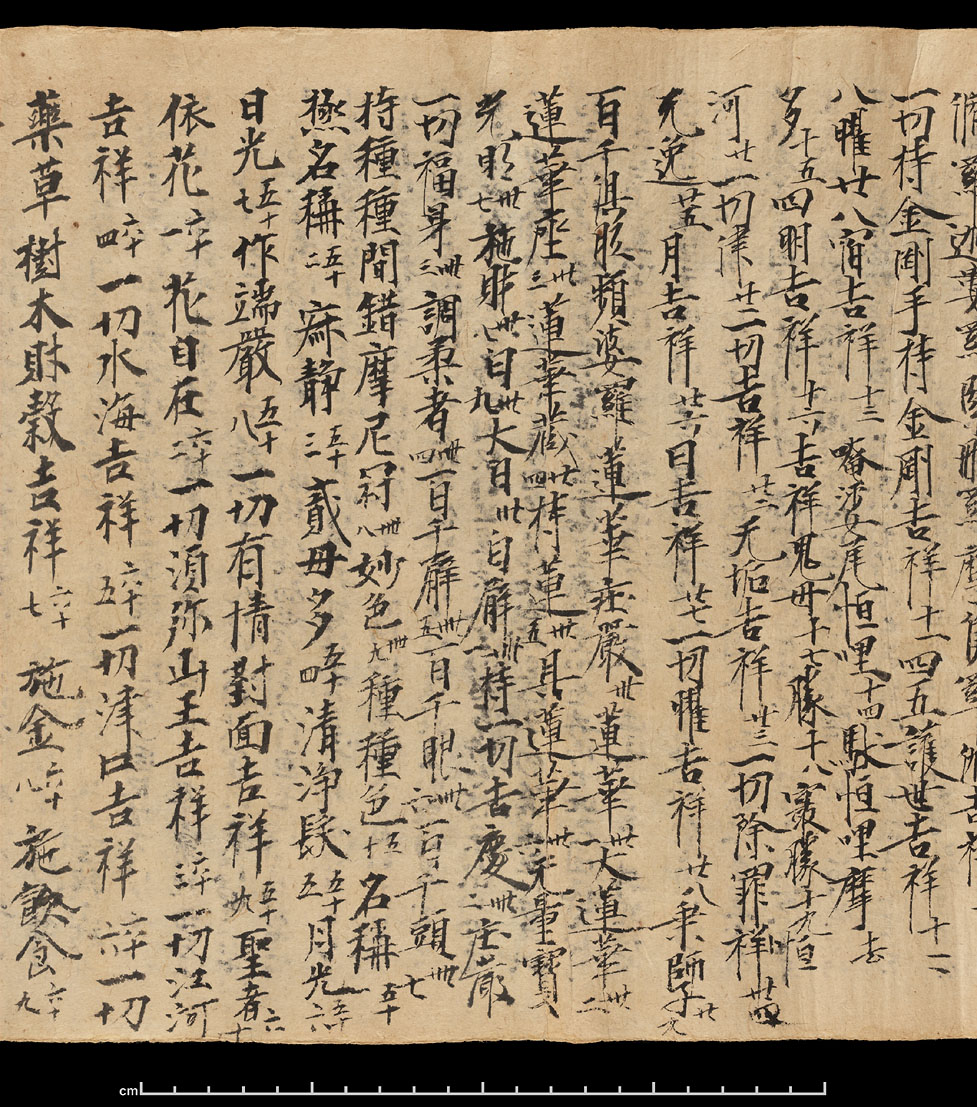 一切持金剛手持金剛吉祥十一四五護世吉祥十二
八曜廿八宿吉祥十三唵莎去尾怛哩十四馱怛哩摩去
多十五四明吉祥十六吉祥鬼母十七勝十八㝡勝十九恒
河廿一切津廿二一切吉祥廿二无垢吉祥廿三一切除罪祥廿四
无逸廿五月吉祥廿六日吉祥廿七一切曜吉祥廿八乗師子廿九
百千俱胝頻婆羅蓮華莊嚴卅蓮華卅一大蓮華卅二
蓮華座卅三蓮華藏卅四持蓮卅五具蓮華卅六无量寳
光明卅七施財卅八日卅九大日卌白廨卌一持一切吉慶卌二莊嚴
一切福身卌三調柔者卌四百千廨卌五百千眼卌六百千頭卌七
持種種間錯摩尼冠卌八妙色卌九種種色五十名稱五十一
極名稱五十二寂静五十三貳毋多五十四清浄髮五十五月光五十六
日光五十七作端嚴五十八一切有情對面吉祥五十九聖者六十
依花六十一花自在六十二一切須弥山王吉祥六十三一切江河
吉祥六十四一切水海吉祥六十五一切津口吉祥六十六一切
藥草樹木財穀吉祥六十七施金六十八施飲食六十九